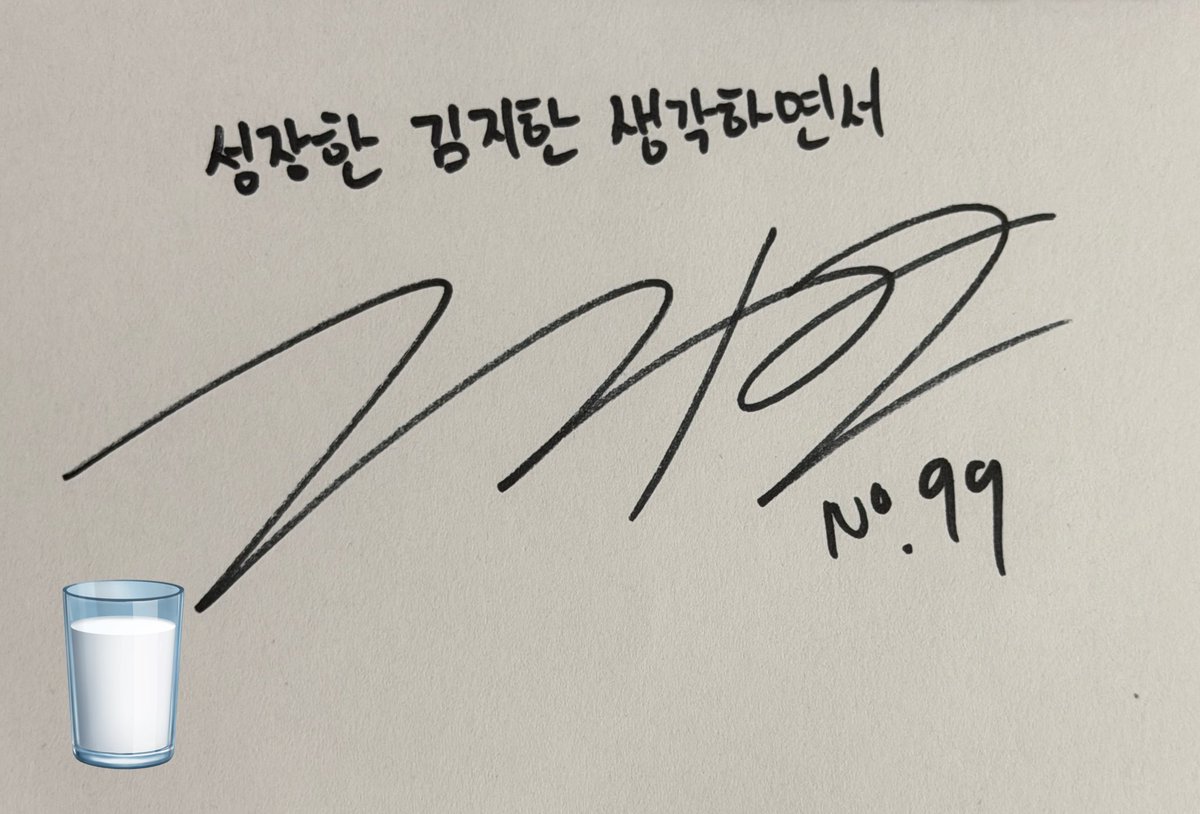 성장한 김지한 생각하면서
No. 99